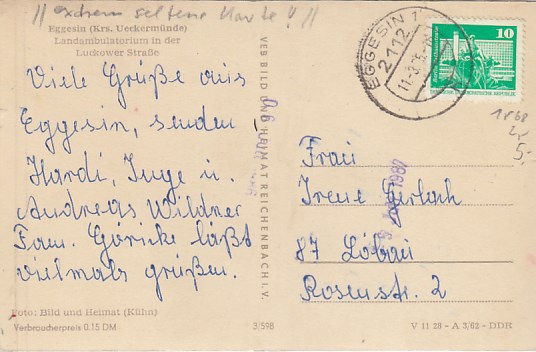 // extrem seltene Karte! //
Eggesin (Krs. Ueckermünde)
Landambulatorium in der
Luckower Straße
Viele Grüße aus
Eggesin, senden
Hardi, Inge u.
Andreas Wildner
Fam. Göricke läßt
vielmals grüßen.
Foto: Bild und Heimat (Kühn)
Verbraucherpreis 0.15 DM
3/598
VEB BILD UND HEIMAT REICHENBACH I. V.
EGGESIN 1
2112
10
Frau
Irene Gerlach
87 Löbau
Rosenstr. 2
1987
5,-
V 11 28 - A 3/62 - DDR